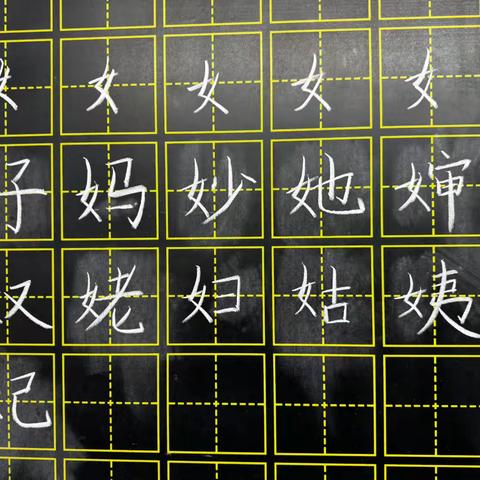 女 女 女 女
子 妈 妙 她 婶
姥 妇 姑 姨